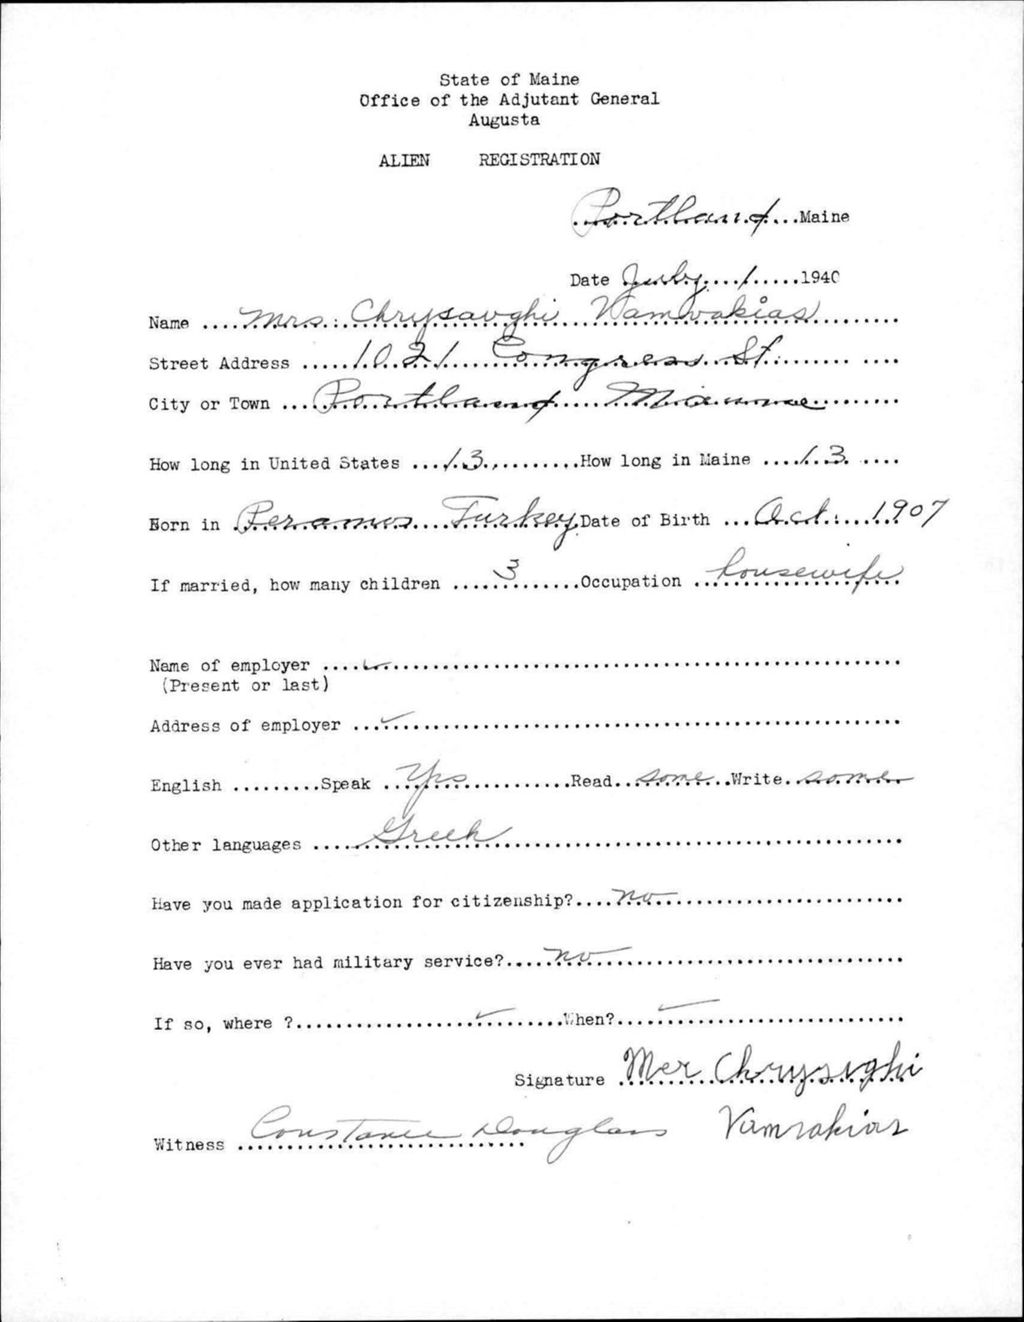 State of Maine
Office of the Adjutant General
Augusta
ALIEN REGISTRATION
Portland...Maine
Date July 1......1940
Name ....Mrs. Chrysavghi Vamvakias..........
Street Address .....1021 Congress St............
City or Town ....Portland Mianne..........
How long in United States ...13..........How long in Maine ....13. ....
Born in .Peramos....Turkey.Date of Birth ...Oct.....1907
If married, how many children .....3........Occupation ..housewife
Name of employer ....✓..................................................
(Present or last)
Address of employer ...✓................................................
English .........Speak ...Yes............Read...some..Write..some
Other languages .....Greek..........................................
Have you made application for citizenship?....no........................
Have you ever had military service?.....no..............................
If so, where ?..................✓........When?....✓.......................
Signature Mer Chrysvghi
Vamvakias
Witness Constance Douglass